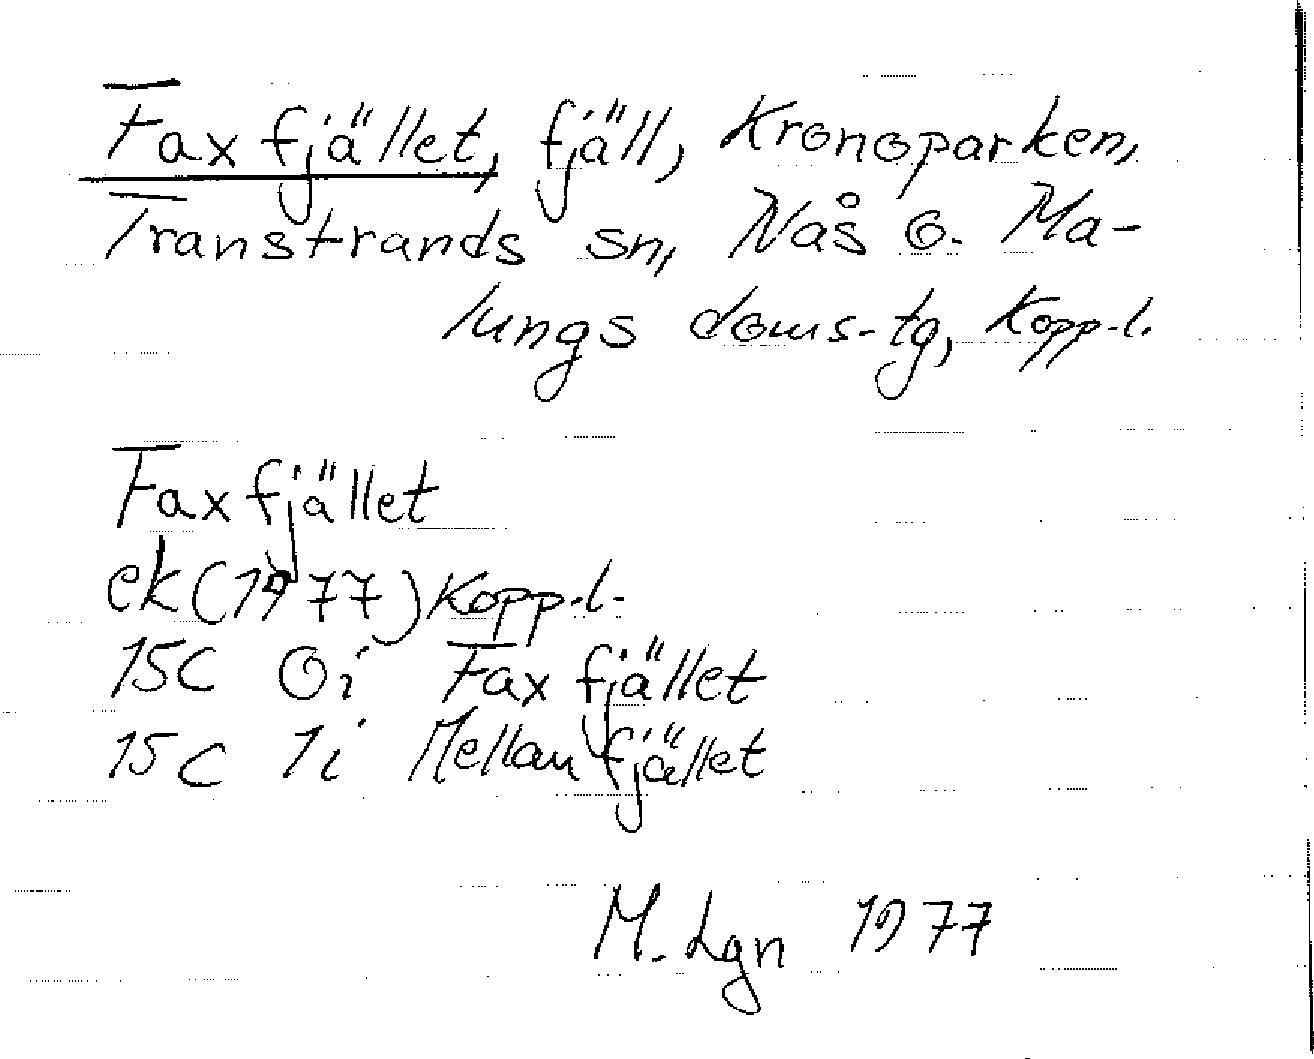 Faxfjället, fjäll, Kronoparken,
Transtrands sn, Nås o. Ma-
lungs doms-tg, Kopp.l.
Faxfjället
ek (1977) Kopp.l.
15C 0i Faxfjället
15C 1i Mellanfjället
M. Lgn 1977